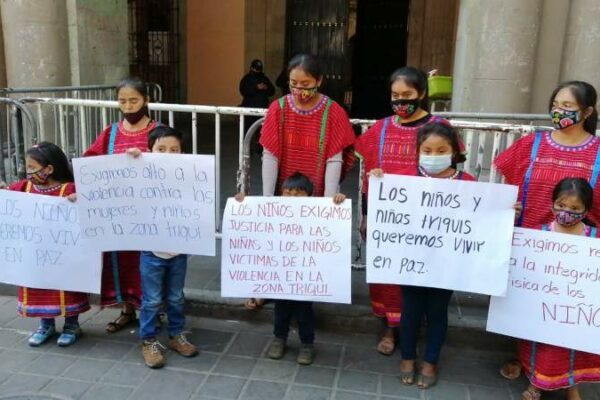 LOS NIÑOS
QUEREMOS VIV
EN PAZ
Exigimos alto a la
violencia contra las
mujeres y niños
en la zona triqui
LOS NIÑOS EXIGIMOS
JUSTICIA PARA LAS
NIÑAS Y LOS NIÑOS
VICTIMAS DE LA
VIOLENCIA EN LA
ZONA TRIQUI
LOS NIÑOS Y
niñas TRIQUIS
queremos vivir
en paz.
Exigimos re
a la integrida
física de los
NIÑO